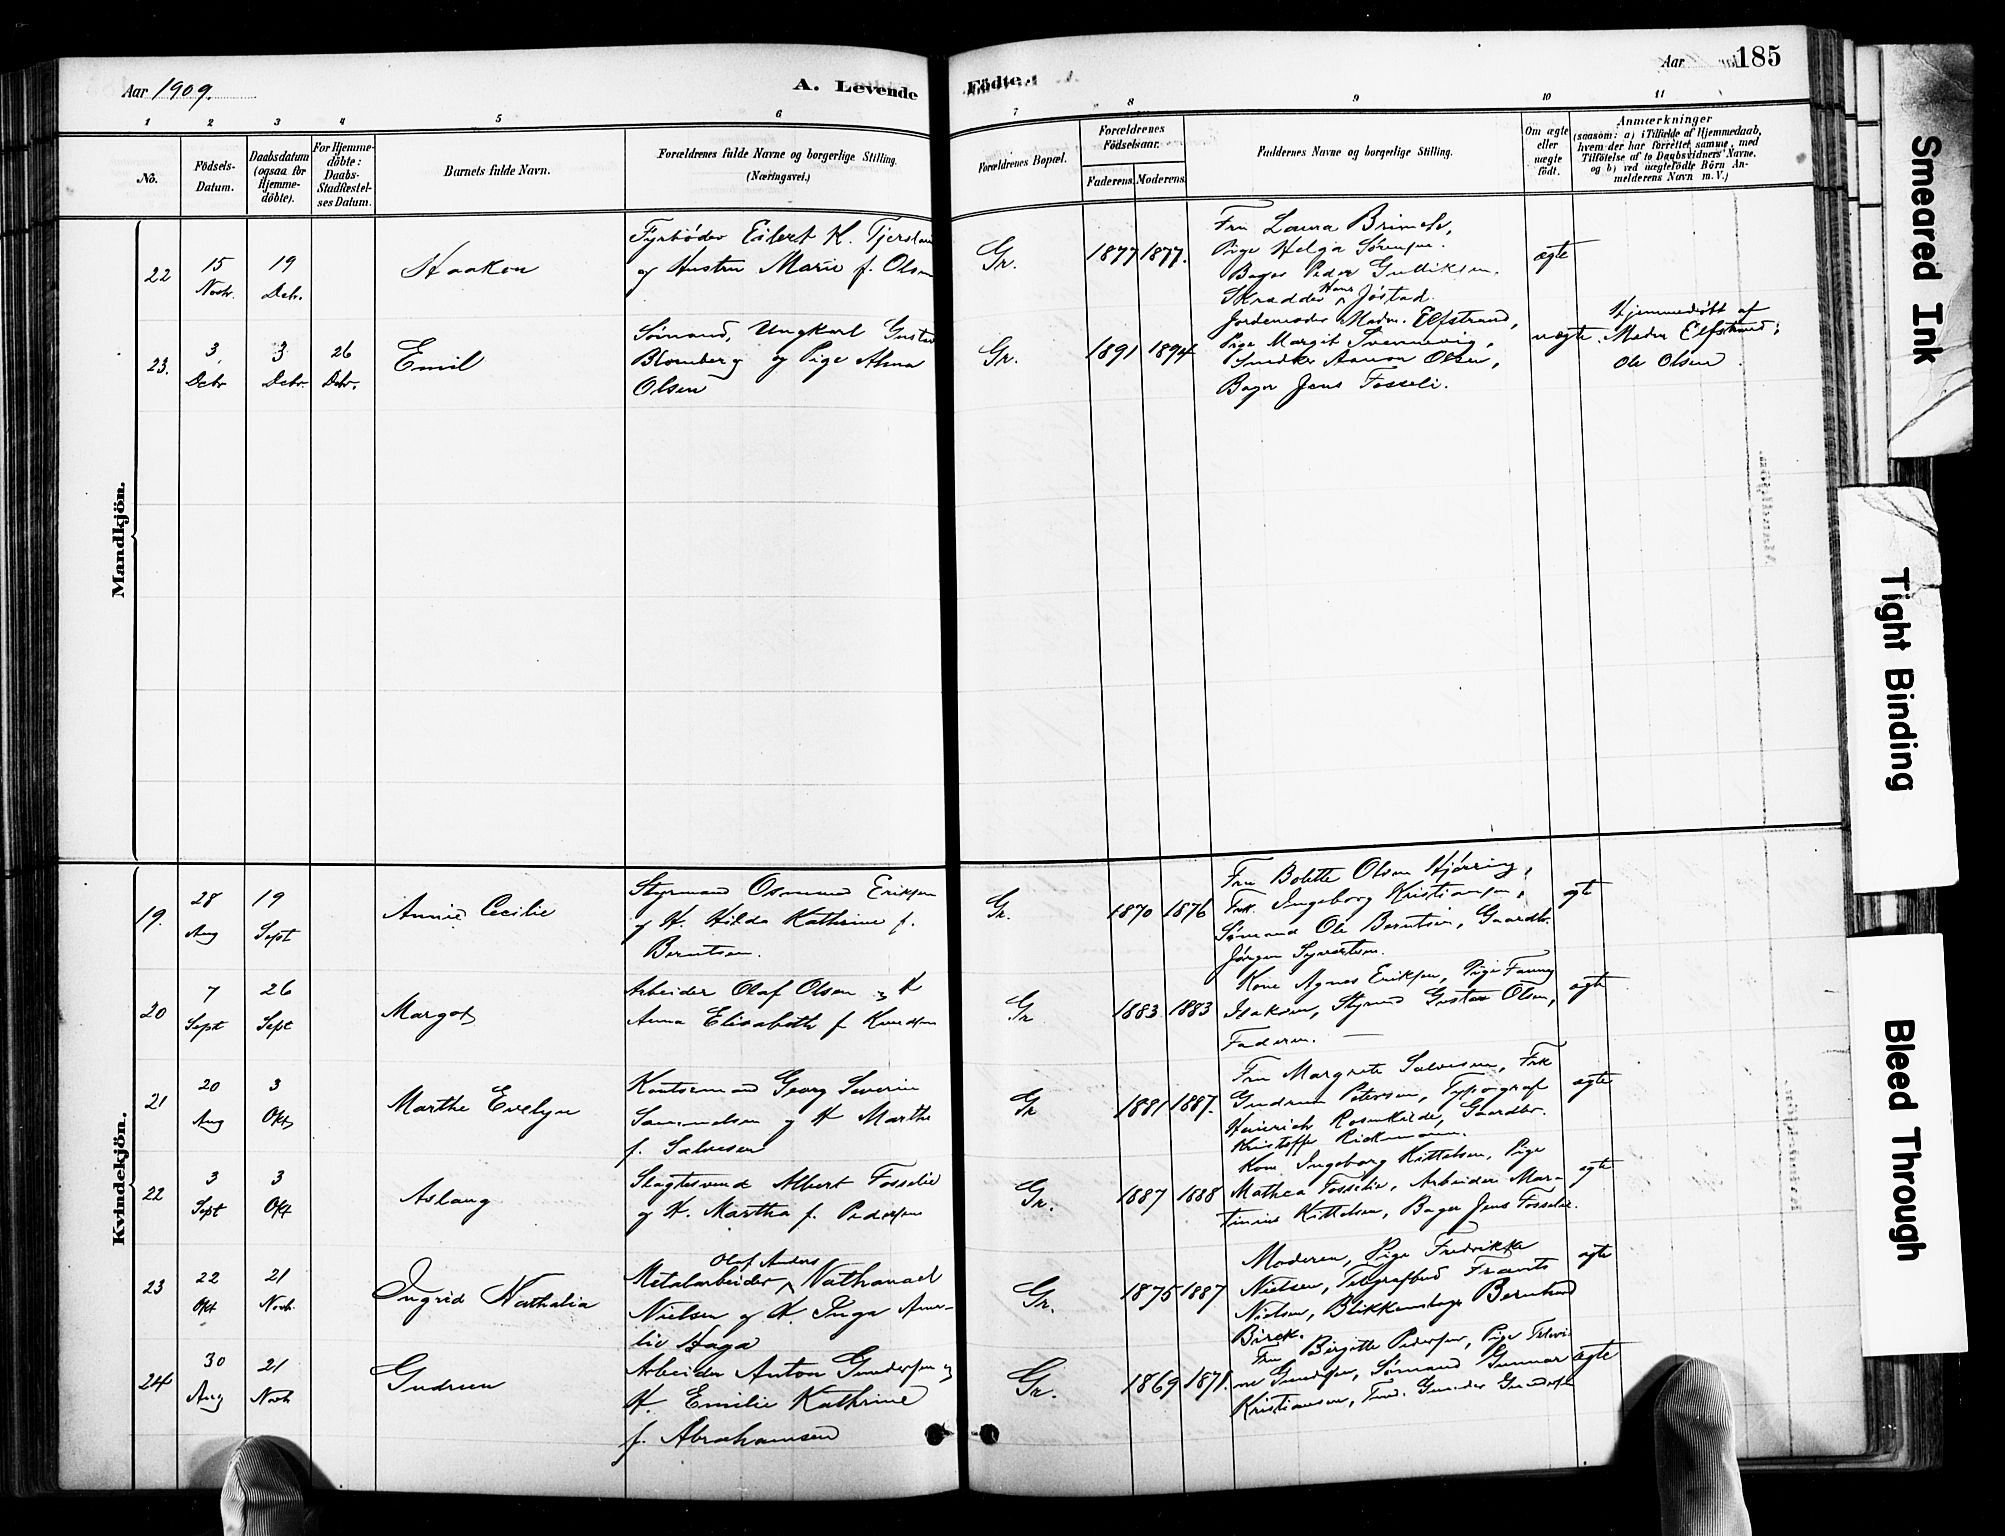 Aar 1909.
A. Levende
Födte.
Aar
185
1 2 3 4 5 6 7 8 9 10 11
No.
Födsels-Datum.
Daabsdatum (ogsaa for Hjemme-döbte).
For Hjemme-döbte: Daabs-Stadfæstel-ses Datum.
Barnets fulde Navn.
Forældrenes fulde Navne og borgerlige Stilling. (Næringsvei.)
Forældrenes Bopæl.
Forældrenes Födselsaar.
Faderens.
Moderens.
Faddernes Navne og borgerlige Stilling.
Om ægte eller uægte födt.
Anmærkninger
(saasom: a) i Tilfælde af Hjemmedaab, hvem der har forrettet samme, med Tilföielse af to Daabsvidners Navne, og b) ved uægtefödte Börn An-melderens Navn m. V.)
Mandkjön.
22
15 Novbr.
19 Debr.
Haakon
Fyrbøder Eilert K.
og Hustru Marie f. Olsen
Gr.
1877 1877.
Fru Laura Brinck,
Pige Helga Sørensen.
Bager Peder Gulliksen.
Skrædder Hans Jøstad.
ægte
23.
3 Debr
3 Debr.
26 Debr.
Emil
Sømand, Ungkarl Gustav
Blomberg og Pige Alma
Olsen
Gr.
1891 1894
Jordemoder Madm. Elfstrand,
Pige Margit
Smed Olsen,
Bager Jens Fosseli.
uægte.
Hjemmedøbt af
Madm Elfstrand;
Ole Olsen
Kvindekjön.
19.
28 Aug
19 Sept
Annie Cecilie
Styrmand Osmund Eriksen
og H. Hilda Kathrine f.
Berntsen.
Gr.
1870 1876
Fru Bolette Olsen Hjørring,
Frk. Ingeborg Kristiansen,
Sømand Ole Berntsen, Gaardbr.
Jørgen Syvertsen.
ægte
20
7 Sept
26 Sept
Margot
Arbeider Olaf Olsen og H
Anna Elisabeth f Knudsen
Gr
1883 1883
Kone Agnes Eriksen, Pige Fanny
Isaksen, Styrmd Gustav Olsen,
Faderen.
ægte
21
20 Aug
3 Okt
Marthe Evelyn
Kontormand Georg Severin
Samuelsen og H Marthe
f. Salvesen
Gr
1881 1887.
Fru Margrete Salvesen, Frk
Gudrun Petersen, Typograf
Heinrich Rosenkilde, Gaardbr.
Kristoffer
ægte
22
3 Sept
3 Okt
Aslaug
Slagtesvend Albert Fosselie
og H. Martha f. Pedersen
Gr.
1887 1888
Kone Ingeborg Kittelsen, Pige
Mathea Fosselie, Arbeider Mar-
tinius Kittelsen, Bager Jens Fosselie.
ægte
23
22 Okt
21 Novb.
Ingrid Nathalia
Metalarbeider Olaf Anders Nathanael
Nielsen og H. Inga Ame-
lie Haga
Gr.
1875 1887
Moderen, Pige Fredrikke
Nielsen, Telegrafbud Frants
Nielsen, Blikkenslager Bernhard
Birck.
ægte
24
30 Aug
21 Novb
Gudrun
Arbeider Anton Gundersen og
H. Emilie Kathrine
f. Abrahamsen
Gr.
1869 1871.
Fru Birgitte Pedersen, Pige
Gundersen, Sømand Gunnar
Kristiansen, Tmd. Gunder Gundersen
ægte
Smeared Ink
Tight Binding
Bleed Through